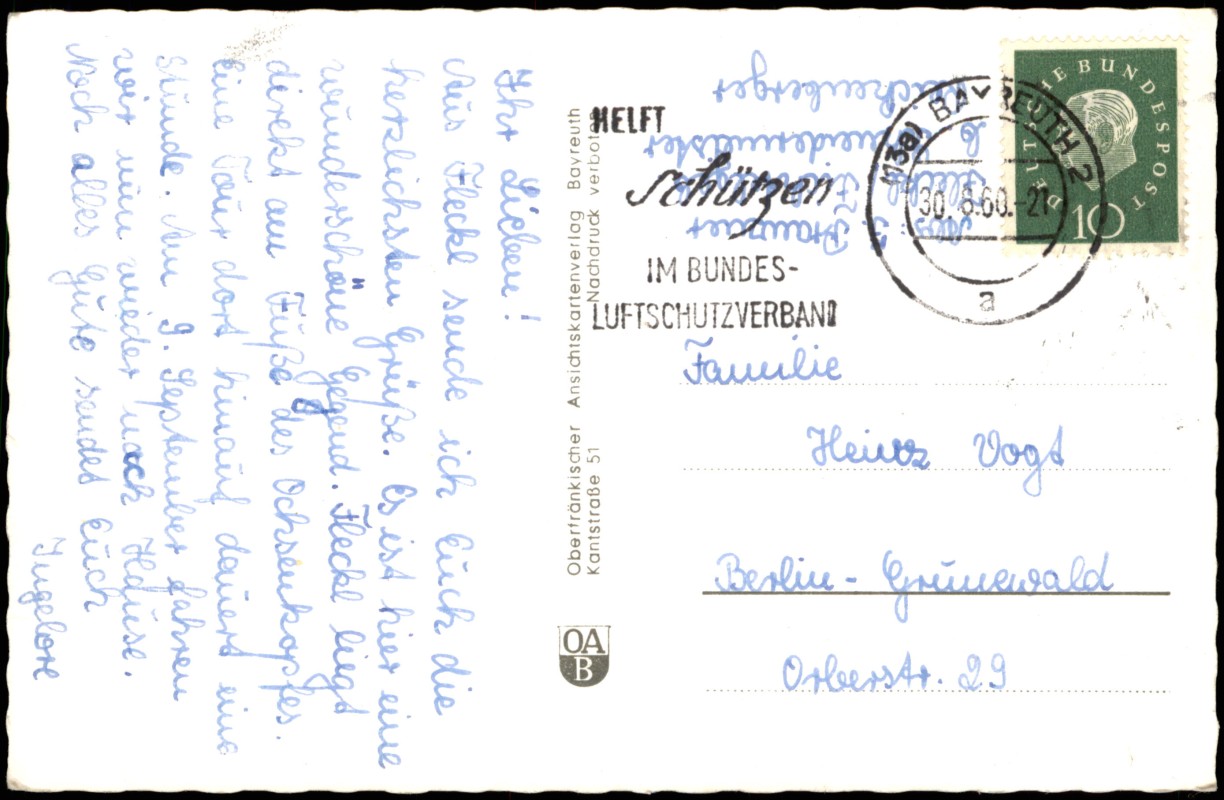 Ihr Lieben!
Aus Fleckl sende ich Euch die
herzlichsten Grüße. Es ist hier eine
wunderschöne Gegend. Fleckl liegt
direkt am Fuße des Ochsenkopfes.
Eine Tour dort hinauf dauert eine
Stunde. Am 9. September fahren
wir nun wieder nach Hause.
Noch alles Gute sendet Euch
Ingelore
Oberfränkischer Ansichtskartenverlag Bayreuth
Kantstraße 51 Nachdruck verboten
OA
B
HELFT
schützen
IM BUNDES-
LUFTSCHUTZVERBAND
(13a) BAYREUTH 2
30.8.60.-21
a
DEUTSCHE BUNDESPOST
10
Familie
Heinz Vogt
Berlin-Grunewald
Orberstr. 29